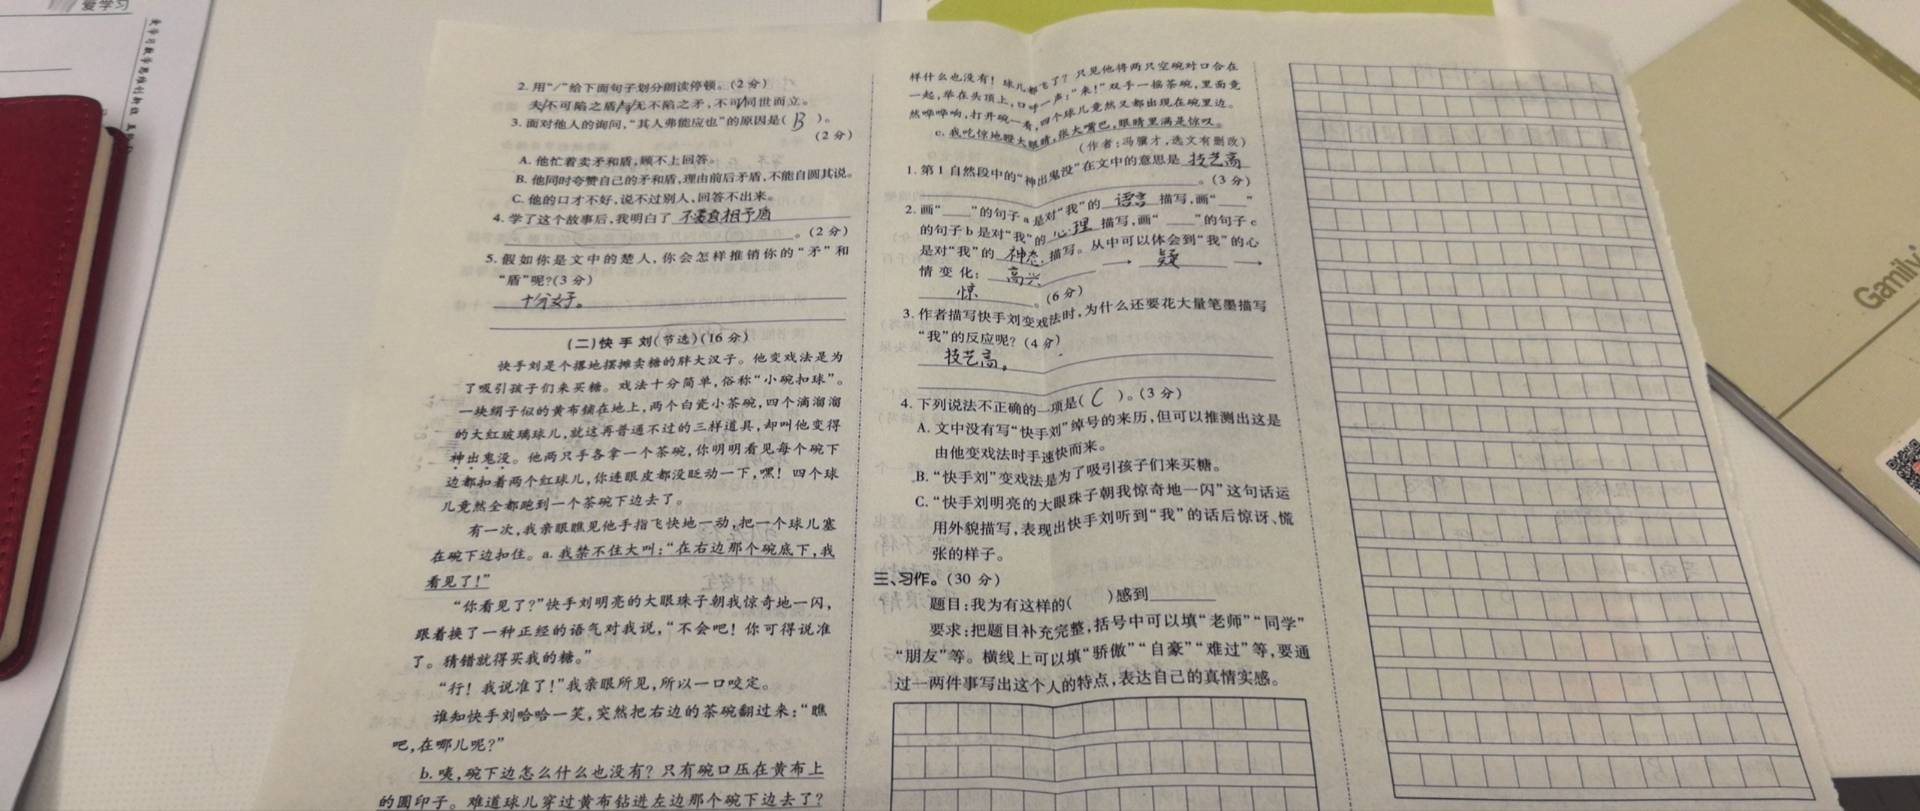 爱学习
2.用“/”给下面句子划分朗读停顿。(2分)
夫/不可陷之盾/与无不陷之矛,不可/同世而立。
3.面对他人的询问,“其人弗能应也”的原因是( B )。
(2分)
A.他忙着卖矛和盾,顾不上回答。
B.他同时夸赞自己的矛和盾,理由前后矛盾,不能自圆其说。
C.他的口才不好,说不过别人,回答不出来。
4.学了这个故事后,我明白了 不要自相矛盾
。(2分)
5.假如你是文中的楚人,你会怎样推销你的“矛”和
“盾”呢?(3分)
十分好。
(二)快手刘(节选)(16分)
快手刘是个摆地摆摊卖糖的胖大汉子。他变戏法是为
了吸引孩子们来买糖。戏法十分简单,俗称“小碗扣球”。
一块绢子似的黄布铺在地上,两个白瓷小茶碗,四个滴溜溜
的大红玻璃球儿,就这再普通不过的三样道具,却叫他变得
神出鬼没。他两只手各拿一个茶碗,你明明看见每个碗下
边都扣着两个红球儿,你连眼皮都没眨动一下,嘿!四个球
儿竟然全都跑到一个茶碗下边去了。
有一次,我亲眼瞧见他手指飞快地一动,把一个球儿塞
在碗下边扣住。a.我禁不住大叫:“在右边那个碗底下,我
看见了!”
“你看见了?”快手刘明亮的大眼珠子朝我惊奇地一闪,
跟着换了一种正经的语气对我说,“不会吧!你可得说准
了。猜错就得买我的糖。”
“行!我说准了!”我亲眼所见,所以一口咬定。
谁知快手刘哈哈一笑,突然把右边的茶碗翻过来:“瞧
吧,在哪儿呢?”
b.咦,碗下边怎么什么也没有?只有碗口压在黄布上
的圆印子。难道球儿穿过黄布钻进左边那个碗下边去了?
样什么也没有!球儿都飞了?只见他将两只空碗对口合在
一起,举在头顶上,口呼一声:“来!”双手一摇茶碗,里面竟
然哗哗响,打开碗一看,四个球儿竟然又都出现在碗里边。
c.我吃惊地瞪大眼睛,张大嘴巴,眼睛里满是惊叹。
(作者:冯骥才,选文有删改)
1.第1自然段中的“神出鬼没”在文中的意思是 技艺高
。(3分)
2.画“____”的句子a是对“我”的 语言 描写,画“____”
的句子b是对“我”的 心理 描写,画“____”的句子c
是对“我”的 神态 描写。从中可以体会到“我”的心
情变化: 高兴 → 疑 →
惊 。(6分)
3.作者描写快手刘变戏法时,为什么还要花大量笔墨描写
“我”的反应呢?(4分)
技艺高。
4.下列说法不正确的一项是( C )。(3分)
A.文中没有写“快手刘”绰号的来历,但可以推测出这是
由他变戏法时手速快而来。
B.“快手刘”变戏法是为了吸引孩子们来买糖。
C.“快手刘明亮的大眼珠子朝我惊奇地一闪”这句话运
用外貌描写,表现出快手刘听到“我”的话后惊讶、慌
张的样子。
三、习作。(30分)
题目:我为有这样的( )感到________
要求:把题目补充完整,括号中可以填“老师”“同学”
“朋友”等。横线上可以填“骄傲”“自豪”“难过”等,要通
过一两件事写出这个人的特点,表达自己的真情实感。
Gamily